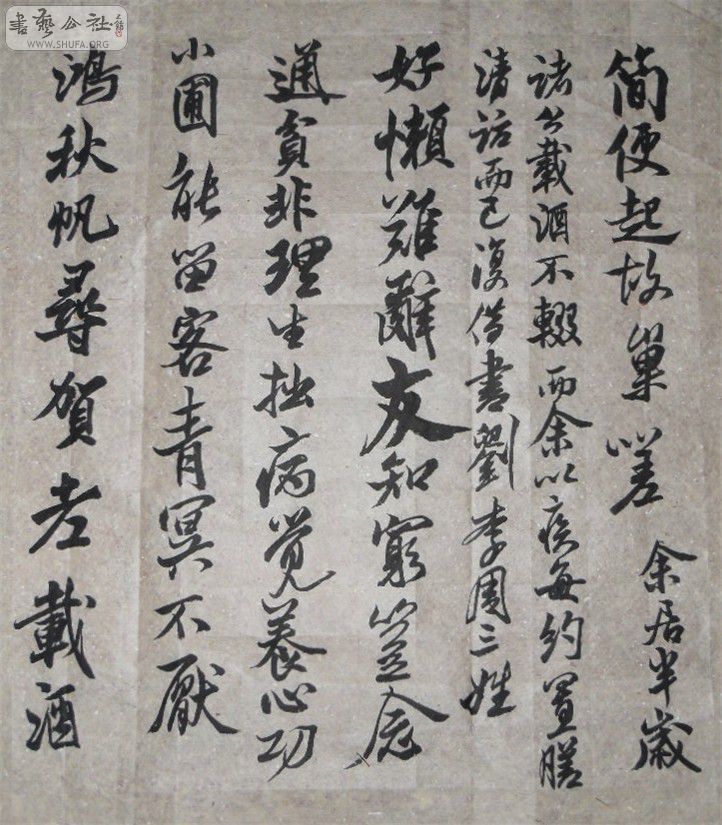 書藝公社
WWW.SHUFA.ORG
簡便起故巢嗟 余居半歲
諸公載酒不輟而余以疾每約置膳
清話而已復借書劉李周三姓
好懶難辭友知窮豈念
通貧非理生拙病覺養心功
小圃能留客青冥不厭
鴻秋帆尋賀老載酒